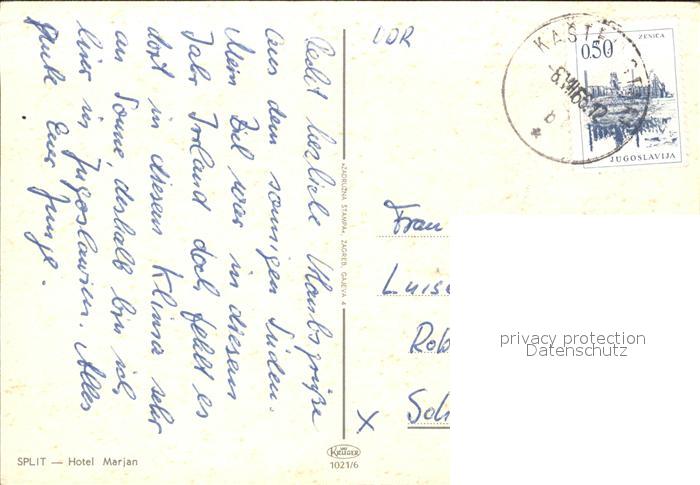 Recht herzliche Urlaubsgrüße
aus dem sonnigen Süden.
Mein Ziel war in diesem
Jahr Irland doch fehlt es
dort in diesem Klima sehr
an Sonne, deshalb bin ich
hier in Jugoslawien. Alles
Gute Euer Junge.
SPLIT — Hotel Marjan
»ZADRUŽNA ŠTAMPA«, ZAGREB, GAJEVA 4
KRÜGER
1021/6
DDR
KAŠTEL
0.50
ZENICA
JUGOSLAVIJA
Frau
Luise
Rob
X Sch
privacy protection
Datenschutz